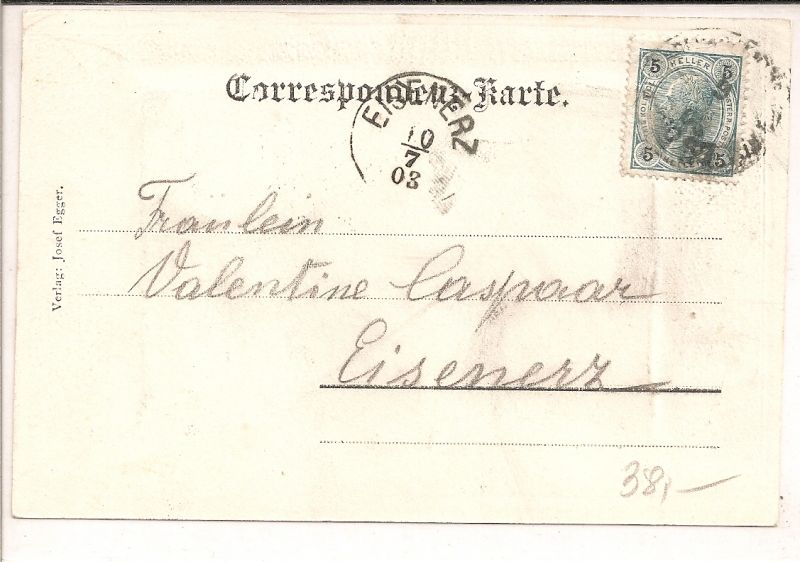 Correspondenz-Karte.
5 HELLER 5
5 5
EISENERZ
10
7
03
Verlag: Josef Egger.
Fräulein
Valentine Caspaar
Eisenerz
38,—